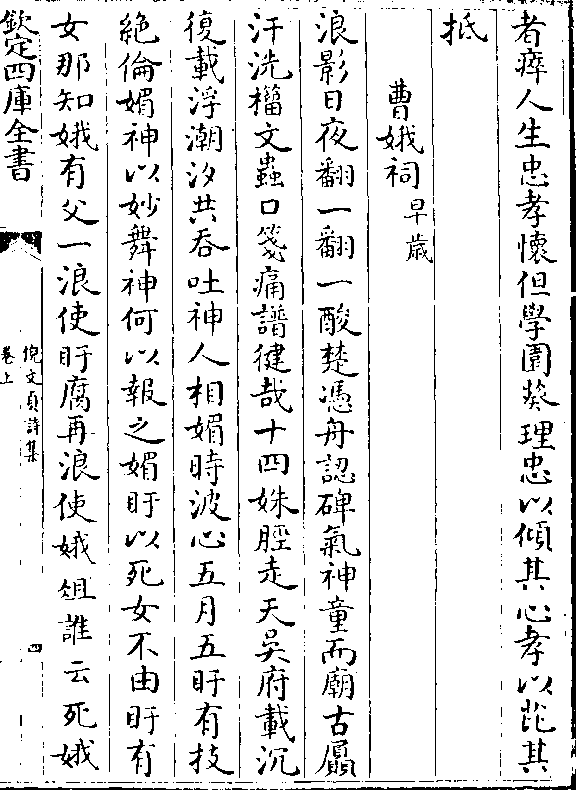 者瘁人生忠孝懷但學園葵理忠以傾其心孝以芘其
抵
曹娥祠早歲
浪影日夜翻一翻一酸楚憑舟認碑氣神童而廟古屭
汗洗㯿文蟲口箋痛譜健哉十四姝脛走天吳府載沉
復載浮潮汐共吞吐神人相媚時波心五月五盱有技
絕倫媚神以妙舞神何以報之媚盱以死女不由盱有
女那知娥有父一浪使盱腐再浪使娥俎誰云死娥
欽定四庫全書
倪文貞詩集
卷上
四